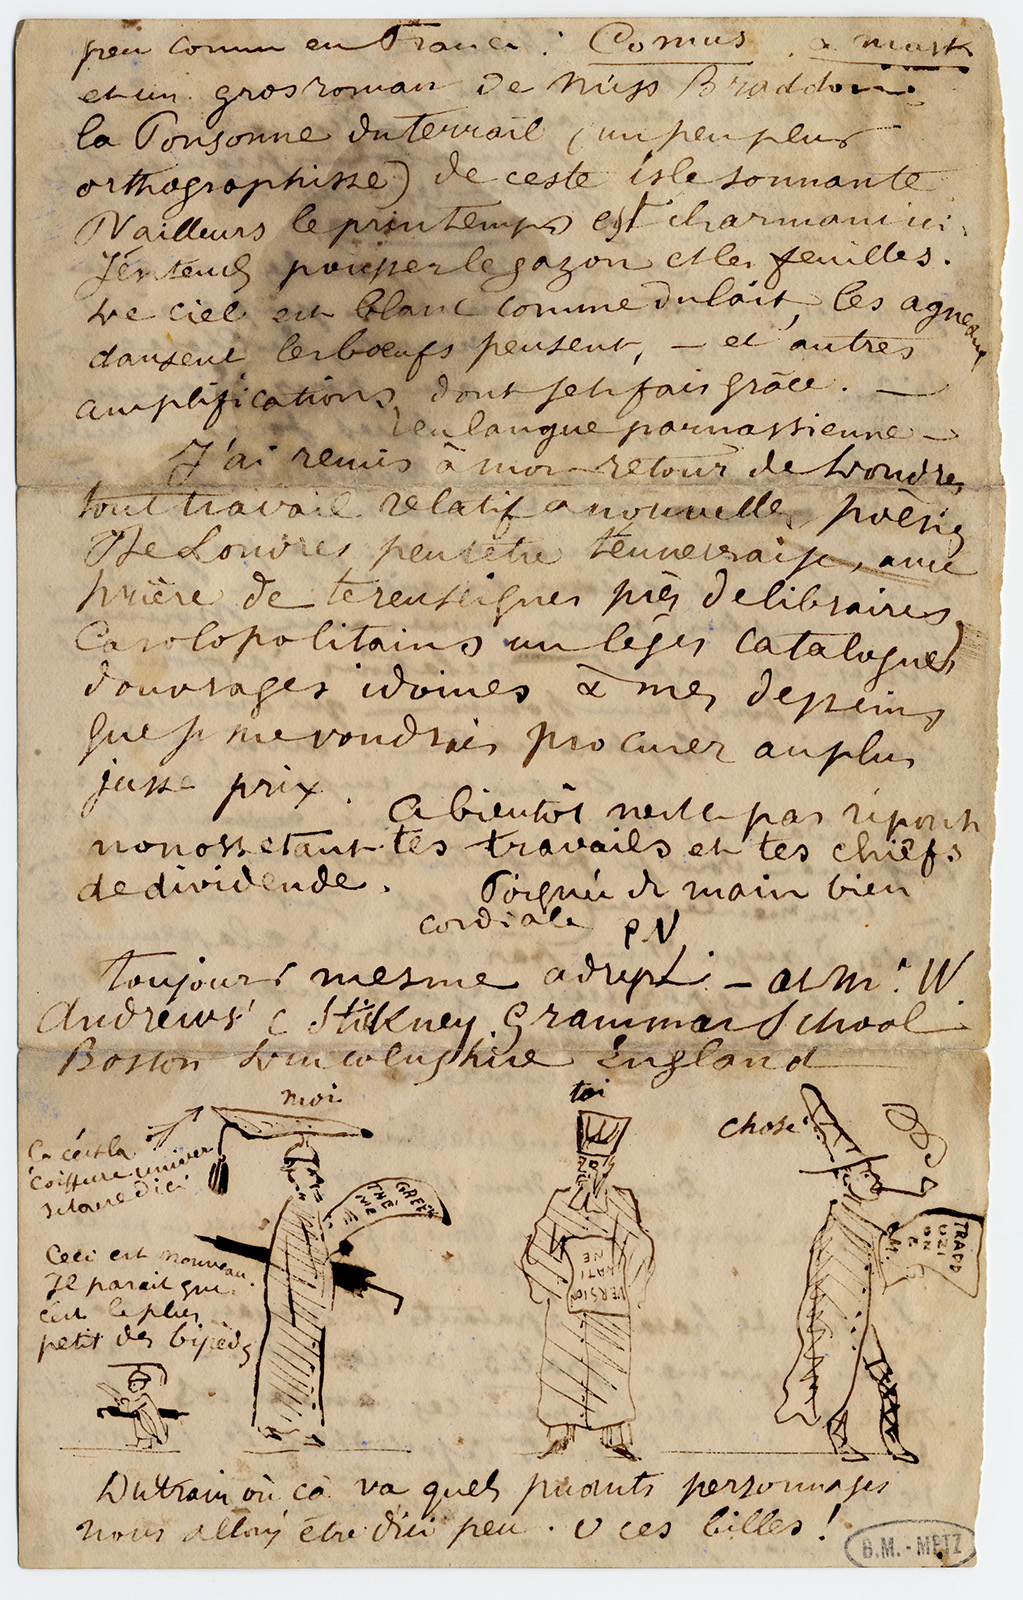 peu commun en France : Comus, a mask
et un gros roman de Miss Braddon
la Ponsonne du terrail (un peu plus
orthographisse) de ceste isle sonnante
D'ailleurs le printemps est charmant ici.
J'entends pousser le gazon et les feuilles.
Le ciel est blanc comme du lait, les agneaux
dansent les bœufs pensent, — et autres
amplifications, dont je te fais grâce. —
en langue parnassienne —
J'ai remis à mon retour de Londres
tout travail relatif a nouvelles poésies
De Londres peut être t'enverrai je, avec
prière de te renseigner près de libraires
Carolopolitains un léger catalogue
d'ouvrages idoines à mes desseins
que je me voudrais procurer au plus
juste prix.
A bientôt n'est ce pas réponse
nonosstant tes travails et tes chiefs
de dividende. Poignée de main bien
cordiale PV
toujours mesme adresse — at Mr. W.
Andrews' Stickney Grammar School
Boston Lincolnshire England
moi
toi
chose
Ça c'est la
coiffure univer
sitaire d'ici
GREEK
THE
ME
Ceci est nouveau.
Il parait que
c'est le plus
petit des bipèdes
VERSION
LATI
NE
TRADD
UZI
ON
E
Du train où ça va quels puants personnages
nous allons être d'ici peu. O ces billes !
B.M. - METZ